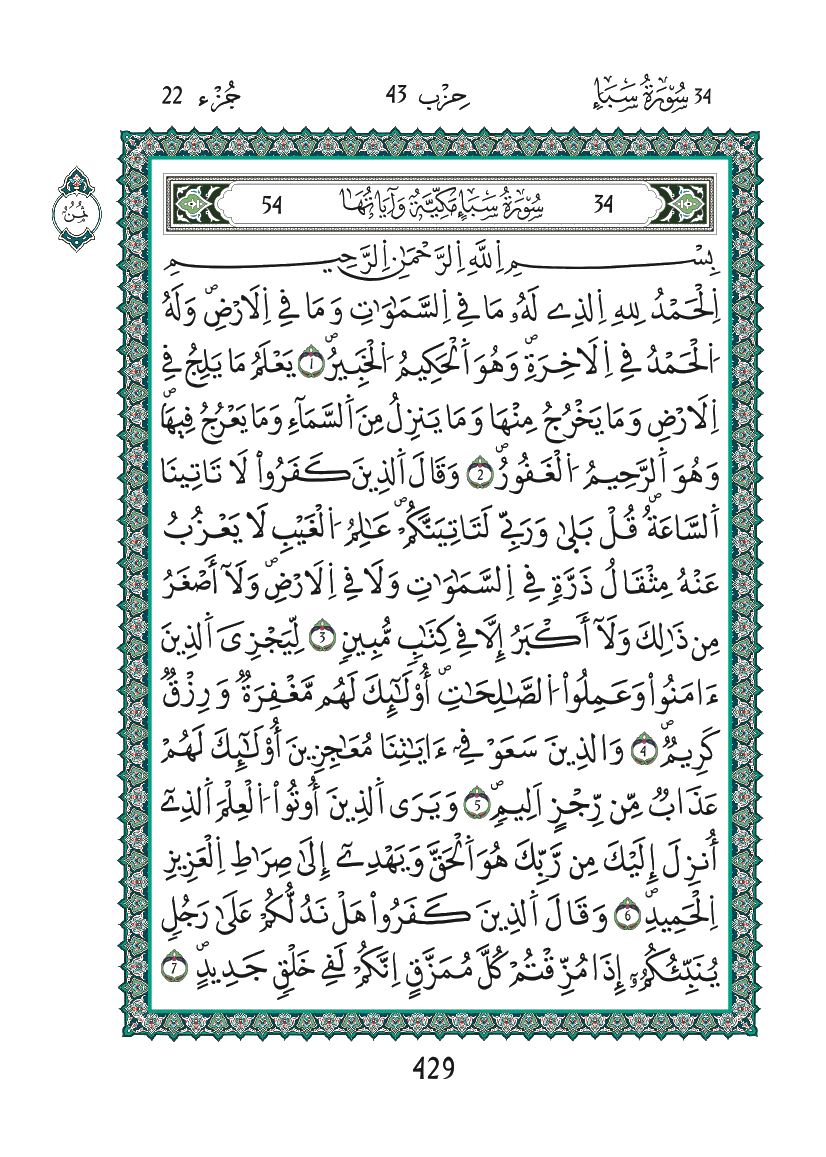 34 سُورَةُ سَبَإٍ
حِزْب 43
جُزْء 22
ثُمُنُ
34 سُورَةُ سَبَإٍ مَكِّيَّةٌ وَآيَاتُهَا 54
بِسْمِ اِ۬للَّهِ اِ۬لرَّحْمَٰنِ اِ۬لرَّحِيمِ
اِ۬لْحَمْدُ لِلهِ اِ۬لذِے لَهُۥ مَا فِے اِ۬لسَّمَٰوَٰتِ وَمَا فِے اِ۬لَارْضِۖ وَلَهُ
اُ۬لْحَمْدُ فِے اِ۬لَاخِرَةِۖ وَهُوَ اَ۬لْحَكِيمُ اُ۬لْخَبِيرُۖ 1 يَعْلَمُ مَا يَلِجُ فِے
اِ۬لَارْضِ وَمَا يَخْرُجُ مِنْهَا وَمَا يَنزِلُ مِنَ اَ۬لسَّمَآءِ وَمَا يَعْرُجُ فِيهَاۖ
وَهُوَ اَ۬لرَّحِيمُ اُ۬لْغَفُورُۖ 2 وَقَالَ اَ۬لذِينَ كَفَرُواْ لَا تَاتِينَا
اَ۬لسَّاعَةُۖ قُلْ بَلَىٰ وَرَبِّے لَتَاتِيَنَّكُمْۖ عَٰلِمُ اُ۬لْغَيْبِ لَا يَعْزُبُ
عَنْهُ مِثْقَالُ ذَرَّةٖ فِے اِ۬لسَّمَٰوَٰتِ وَلَا فِے اِ۬لَارْضِۖ وَلَآ أَصْغَرُ
مِن ذَٰلِكَ وَلَآ أَكْبَرُ إِلَّا فِے كِتَٰبٖ مُّبِينٖ 3 لِّيَجْزِيَ اَ۬لذِينَ
ءَامَنُواْ وَعَمِلُواْ اُ۬لصَّٰلِحَٰتِۖ أُوْلَٰٓئِكَ لَهُم مَّغْفِرَةٞ وَرِزْقٞ
كَرِيمٞۖ 4 وَالذِينَ سَعَوْ فِےٓ ءَايَٰتِنَا مُعَٰجِزِينَ أُوْلَٰٓئِكَ لَهُمْ
عَذَابٞ مِّن رِّجْزٍ اَلِيمٖۖ 5 وَيَرَى اَ۬لذِينَ أُوتُواْ اُ۬لْعِلْمَ اَ۬لذِےٓ
أُنزِلَ إِلَيْكَ مِن رَّبِّكَ هُوَ اَ۬لْحَقَّ وَيَهْدِےٓ إِلَىٰ صِرَٰطِ اِ۬لْعَزِيزِ
اِ۬لْحَمِيدِۖ 6 وَقَالَ اَ۬لذِينَ كَفَرُواْ هَلْ نَدُلُّكُمْ عَلَىٰ رَجُلٖ
يُنَبِّئُكُمُۥٓ إِذَا مُزِّقْتُمْ كُلَّ مُمَزَّقٍ اِنَّكُمْ لَفِے خَلْقٖ جَدِيدٍۖ 7
429